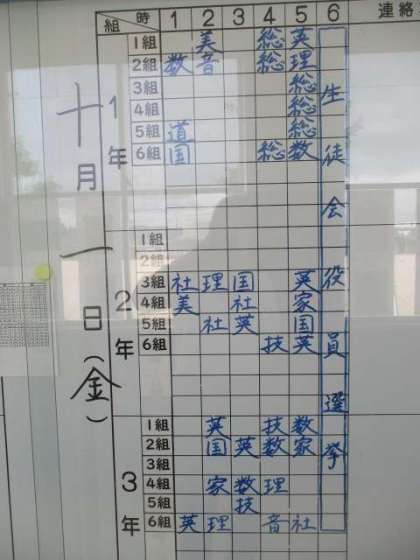 組 時 1 2 3 4 5 6 連絡
十月一日(金)
1年
1組 美 総 英
2組 数 音 総 理
3組 総
4組 総
5組 道 総
6組 国 総 数
2年
1組
2組
3組 社 理 国 英
4組 美 社 家
5組 社 英 国
6組 技 英
3年
1組 英 技 数
2組 国 英 数 家
3組
4組 家 数 理
5組 技
6組 英 理 音 社
生徒会役員選挙